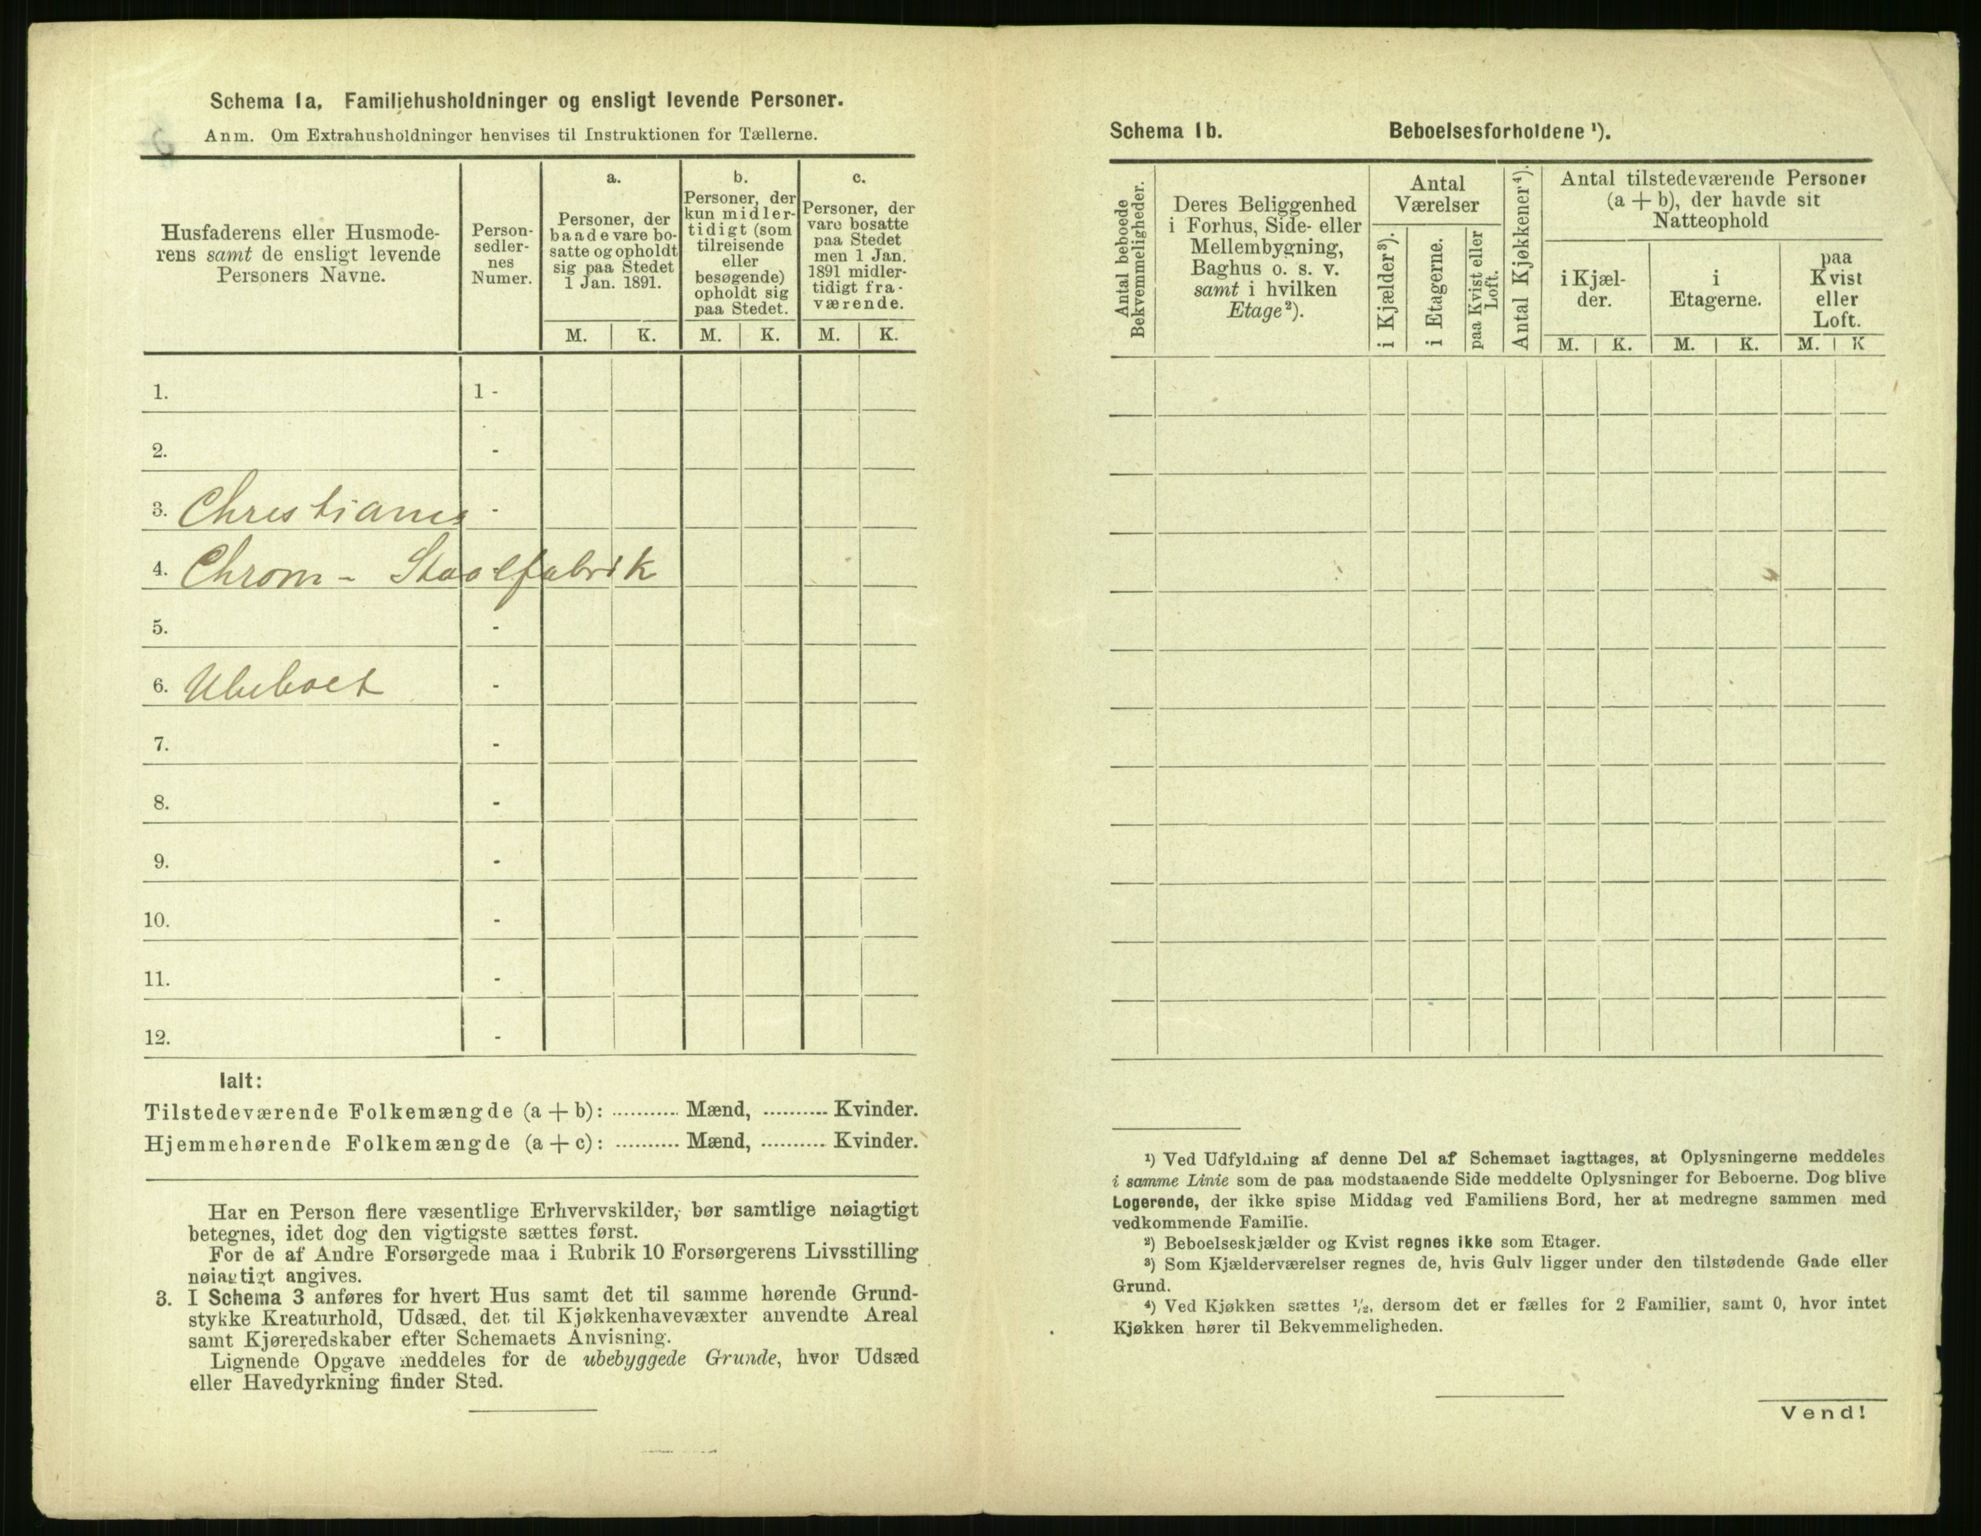 Schema 1a. Familiehusholdninger og ensligt levende Personer.
Anm. Om Extrahusholdninger henvises til Instruktionen for Tællerne.
Husfaderens eller Husmode-
rens samt de ensligt levende
Personers Navne.
Person-
sedler-
nes
Numer.
a.
Personer, der
baade vare bo-
satte og opholdt
sig paa Stedet
1 Jan. 1891.
b.
Personer, der
kun midler-
tidigt (som
tilreisende
eller
besøgende)
opholdt sig
paa Stedet.
c.
Personer, der
vare bosatte
paa Stedet
men 1 Jan.
1891 midler-
tidigt fra-
værende.
M. K. M. K. M. K.
1. 1 -
2. -
3. Christiania -
4. Chrom - Staalfabrik
5. -
6. Ubeboet -
7. -
8. -
9. -
10. -
11. -
12. -
Ialt:
Tilstedeværende Folkemængde (a + b): ........... Mænd, ........... Kvinder.
Hjemmehørende Folkemængde (a + c): ........... Mænd, ........... Kvinder.
Har en Person flere væsentlige Erhvervskilder, bør samtlige nøiagtigt
betegnes, idet dog den vigtigste sættes først.
For de af Andre Forsørgede maa i Rubrik 10 Forsørgerens Livsstilling
nøiagtigt angives.
3. I Schema 3 anføres for hvert Hus samt det til samme hørende Grund-
stykke Kreaturhold, Udsæd, det til Kjøkkenhavevæxter anvendte Areal
samt Kjøreredskaber efter Schemaets Anvisning.
Lignende Opgave meddeles for de ubebyggede Grunde, hvor Udsæd
eller Havedyrkning finder Sted.
Schema 1b. Beboelsesforholdene ¹).
Antal beboede
Bekvemmeligheder.
Deres Beliggenhed
i Forhus, Side- eller
Mellembygning,
Baghus o. s. v.
samt i hvilken
Etage²).
Antal
Værelser
i Kjælder³).
i Etagerne.
paa Kvist eller
Loft.
Antal Kjøkkener⁴).
Antal tilstedeværende Personer
(a + b), der havde sit
Natteophold
i Kjæl-
der.
i
Etagerne.
paa
Kvist
eller
Loft.
M. K. M. K. M. K
¹) Ved Udfyldning af denne Del af Schemaet iagttages, at Oplysningerne meddeles
i samme Linie som de paa modstaaende Side meddelte Oplysninger for Beboerne. Dog blive
Logerende, der ikke spise Middag ved Familiens Bord, her at medregne sammen med
vedkommende Familie.
²) Beboelseskjælder og Kvist regnes ikke som Etager.
³) Som Kjælderværelser regnes de, hvis Gulv ligger under den tilstødende Gade eller
Grund.
⁴) Ved Kjøkken sættes ½, dersom det er fælles for 2 Familier, samt 0, hvor intet
Kjøkken hører til Bekvemmeligheden.
Vend!